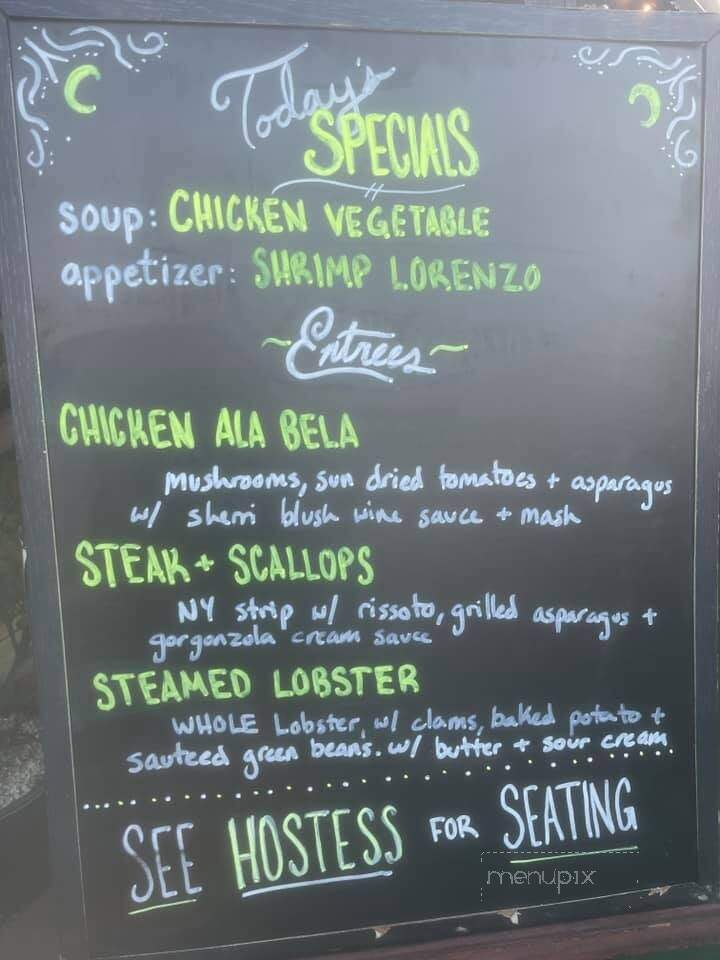 Today's
SPECIALS
soup: CHICKEN VEGETABLE
appetizer: SHRIMP LORENZO
~Entrees~
CHICKEN ALA BELA
Mushrooms, sun dried tomatoes + asparagus
w/ sherri blush wine sauce + mash
STEAK + SCALLOPS
NY strip w/ rissoto, grilled asparagus +
gorgonzola cream sauce
STEAMED LOBSTER
WHOLE Lobster, w/ clams, baked potato +
sauteed green beans. w/ butter + sour cream.
SEE HOSTESS FOR SEATING
menupix